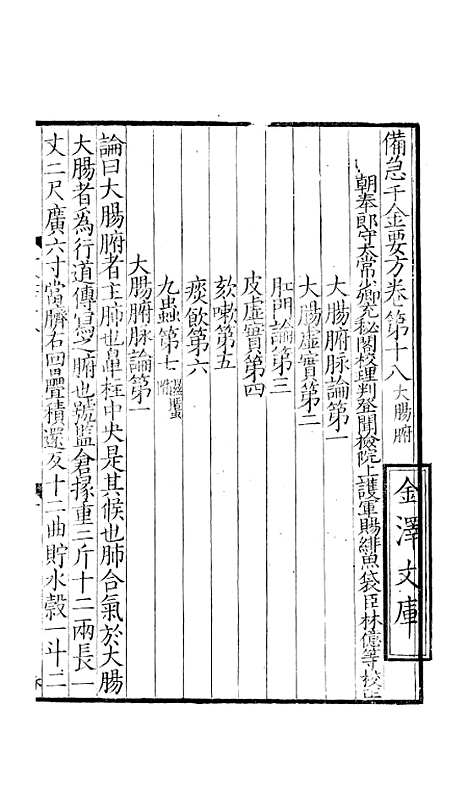 備急千金要方卷第十八 大腸腑
金澤文庫
朝奉郎守太常少卿充秘閣校理判登聞檢院上護軍賜緋魚袋臣林億等校正
大腸腑脉論第一
大腸虛實第二
肛門論第三
皮虛實第四
欬嗽第五
痰飲第六
九蟲第七
大腸腑脉論第一
論曰大腸腑者主肺也鼻柱中央是其候也肺合氣於大腸
大腸者為行道傳瀉之腑也號監倉掾重二斤十二兩長一
丈二尺廣六寸當臍右回疊積還反十二曲貯水穀一斗二